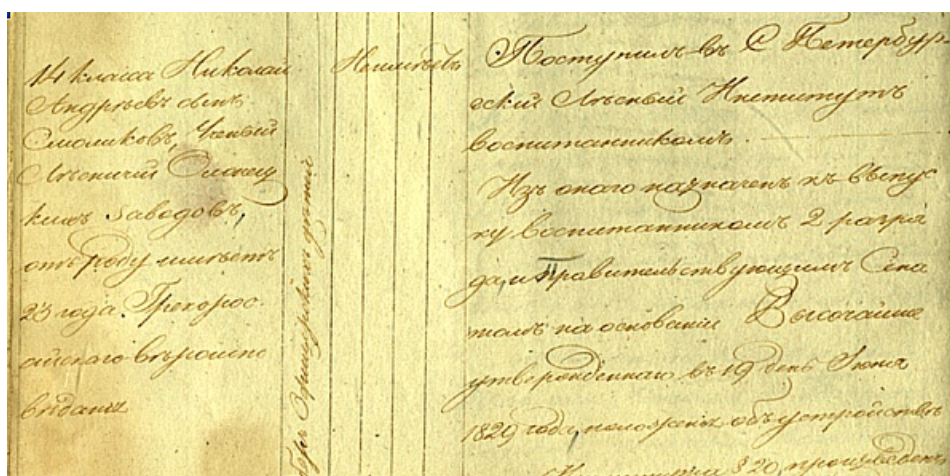 14 класса Николай
Андреевъ сынъ
Смоликовъ, Ученый
Лѣсничій Олонец
кихъ заводовъ,
отъ роду имѣетъ
23 года. Грекорос
сийскаго вѣроиспо
вѣданія
Изъ Оберъ Офицерскихъ дѣтей
Неимѣетъ
Поступилъ въ С Петербург
ский Лѣсный Институтъ
воспитанникомъ.
Изъ онаго назначенъ къ выпус
ку воспитанникомъ 2 разря
да, и Правительствующимъ Сена
томъ на основаніи Высочайше
утвержденнаго въ 19 день Іюня
1829 года, положенія объ устройствѣ
§ 20, произведенъ